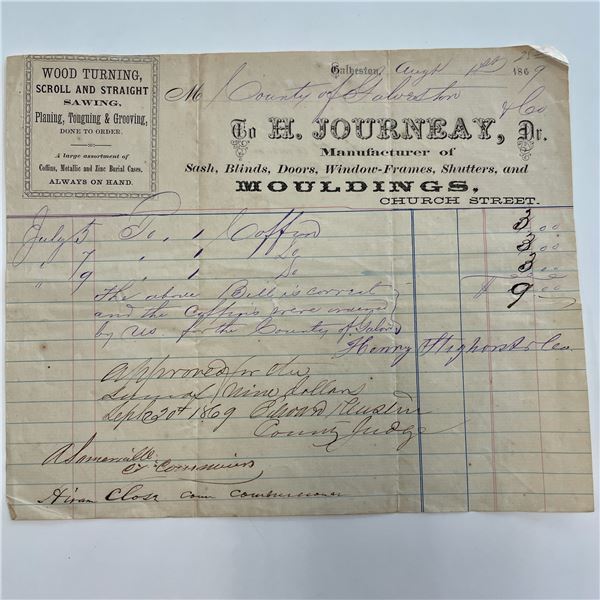 WOOD TURNING,
SCROLL AND STRAIGHT
SAWING,
Planing, Tonguing & Grooving,
DONE TO ORDER.
A large assortment of
Coffins, Metallic and Zinc Burial Cases.
ALWAYS ON HAND.
Galveston, Augt 1st 1869
M County of Galveston
To H. JOURNEAY, & Co Dr.
Manufacturer of
Sash, Blinds, Doors, Window-Frames, Shutters, and
MOULDINGS,
CHURCH STREET.
July 5 To 1 Coffin 3.00
" 7 " 1 Do 3.00
" 9 " 1 Do 3.00
$ 9.00
The above Bill is correct
and the Coffins were ordered
by us for the County of Galv
Henry & Co
approved for the
sum of nine dollars
Sept 22d 1869 Edward
County Judge
A Somerville
Co Commiss
Hiram Close Com Commissioner